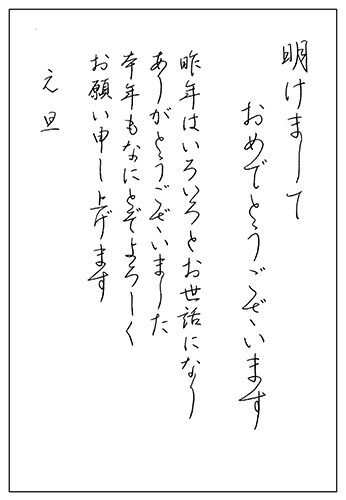 明けまして
おめでとうございます
昨年はいろいろとお世話になり
ありがとうございました
本年もなにとぞよろしく
お願い申し上げます
元旦